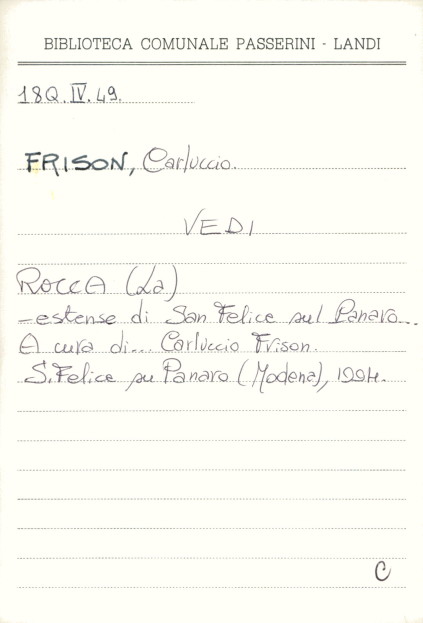 BIBLIOTECA COMUNALE PASSERINI - LANDI
18Q.IV.49.
FRISON, Carluccio.
VEDI
ROCCA (La)
-estense di San Felice sul Panaro...
A cura di... Carluccio Frison.
S.Felice su Panaro (Modena), 1994.
C